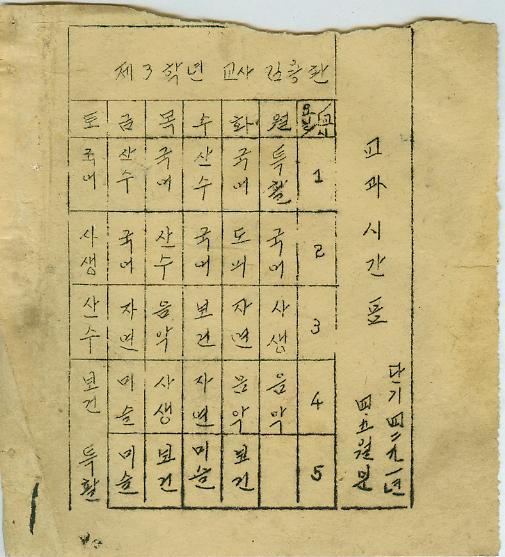 교과시간표
단기 四二九一년
四.五월분
제3학년 교사
토 금 목 수 화 월 요일/교시
국어 산수 국어 산수 국어 특활 1
사생 국어 산수 국어 도의 국어 2
산수 자연 음악 보건 자연 사생 3
보건 미술 사생 자연 음악 음악 4
특활 미술 보건 미술 보건 5